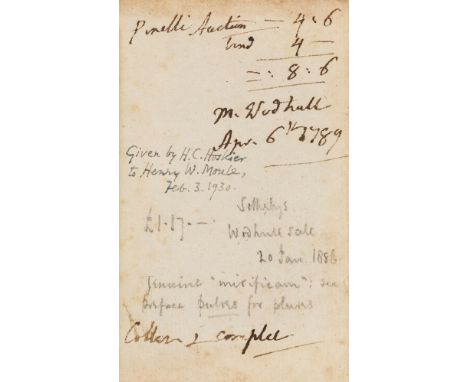 Pinelli Auction — 4 : 6
bind 4 —
— : 8 : 6
M. Wodhull
Apr. 6th 1789
Given by H. C. Hoskier
to Henry W. Moule,
Feb. 3. 1930.
Sothebys
£1.17.—.
Wodhull sale
20 Jan. 1886
genuine "mirificam": see
preface pulres for plures
Collat: & complet